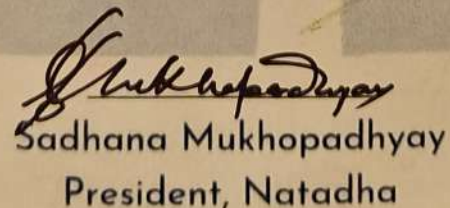 SMukhopadhyay
Sadhana Mukhopadhyay
President, Natadha